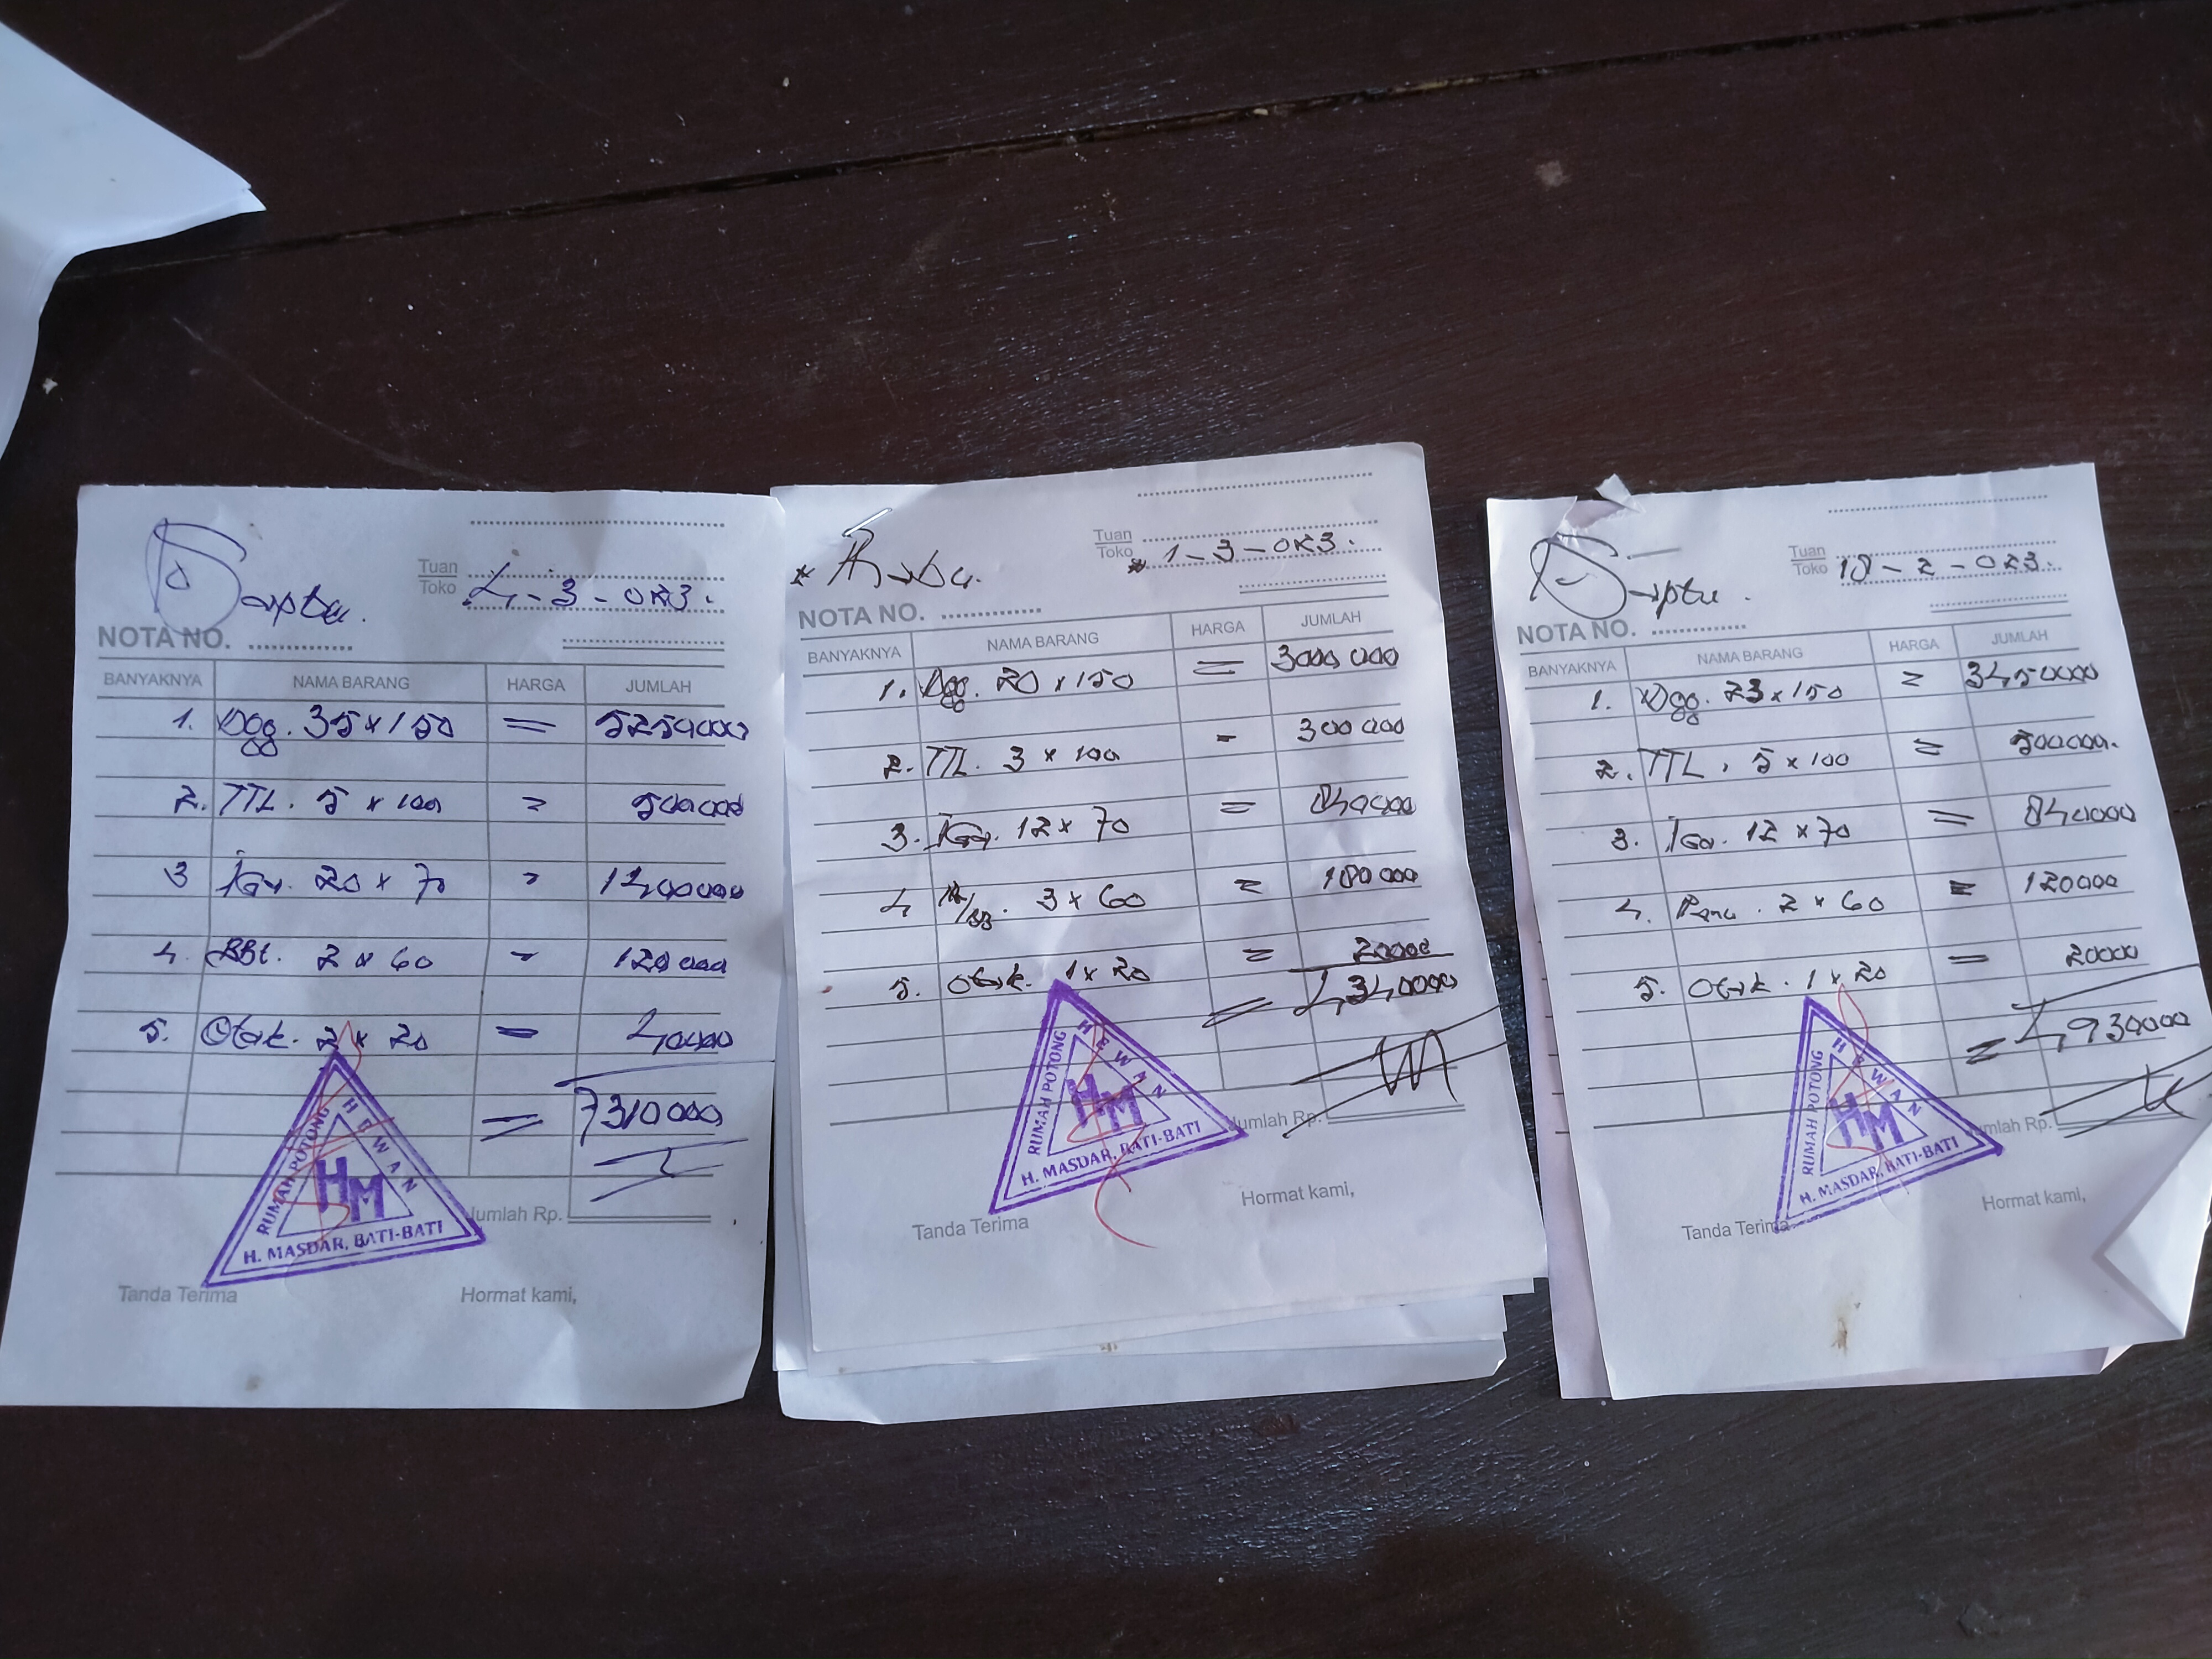 Saptu.
Tuan
Toko
4-3-023.
NOTA NO.
BANYAKNYA NAMA BARANG HARGA JUMLAH
1. Dgg. 35 x 150 = 5250000
2. TTL. 5 x 100 = 500000
3 Iga. 20 x 70 = 1400000
4. BBt. 2 x 60 = 120000
5. Otak. 2 x 20 = 40000
= 7310000
RUMAH POTONG HEWAN
HM
H. MASDAR, BATI-BATI
Jumlah Rp.
Tanda Terima Hormat kami,
* Rabu.
Tuan
Toko
* 1-3-023.
NOTA NO.
BANYAKNYA NAMA BARANG HARGA JUMLAH
1. Dgg. 20 x 150 = 3000000
2. TTL. 3 x 100 = 300000
3. Iga. 12 x 70 = 840000
4 3 x 60 = 180000
5. Otak. 1 x 20 = 20000
= 4340000
RUMAH POTONG HEWAN
HM
H. MASDAR, BATI-BATI
Jumlah Rp.
Tanda Terima Hormat kami,
Saptu.
Tuan
Toko
18-2-023.
NOTA NO.
BANYAKNYA NAMA BARANG HARGA JUMLAH
1. Dgg. 23 x 150 = 3450000
2. TTL. 5 x 100 = 500000.
3. Iga. 12 x 70 = 840000
4. Paru. 2 x 60 = 120000
5. Otak. 1 x 20 = 20000
= 4930000
RUMAH POTONG HEWAN
HM
H. MASDAR, BATI-BATI
Jumlah Rp.
Tanda Terima Hormat kami,